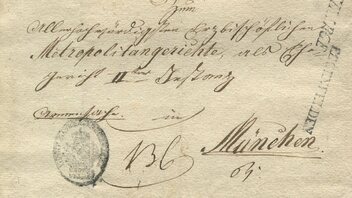 Zum
Allerhochwürdigsten Erzbischöflichen
Metropolitangerichte, als Ehe-
gericht IIter Instanz
Armensache. in
München.